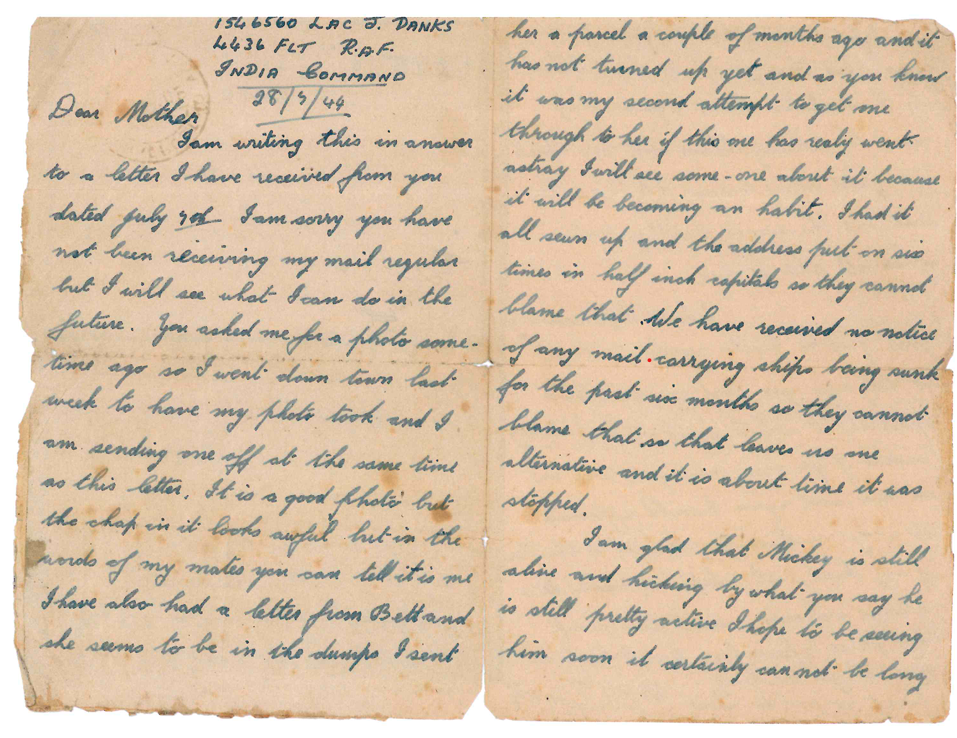 1546560 LAC J. DANKS
4436 FLT R.A.F.
INDIA COMMAND
28/7/44
Dear Mother
I am writing this in answer
to a letter I have received from you
dated July I am sorry you have
not been receiving my mail regular
but I will see what I can do in the
future. You asked me for a photo some-
time ago so I went down town last
week to have my photo took and I
am sending one off at the same time
as this letter. It is a good photo but
the chap in it looks awful but in the
words of my mates you can tell it is me
I have also had a letter from Bett and
she seems to be in the dumps I sent
her a parcel a couple of months ago and it
has not turned up yet and as you know
it was my second attempt to get one
through to her if this one has realy went
astray I will see some-one about it because
it will be becoming an habit. I had it
all sewn up and the address put on six
times in half inch capitals so they cannot
blame that. We have received no notice
of any mail carrying ships being sunk
for the past six months so they cannot
blame that so that leaves us one
alternative and it is about time it was
stopped.
I am glad that Mickey is still
alive and kicking by what you say he
is still pretty active I hope to be seeing
him soon it certainly cannot be long